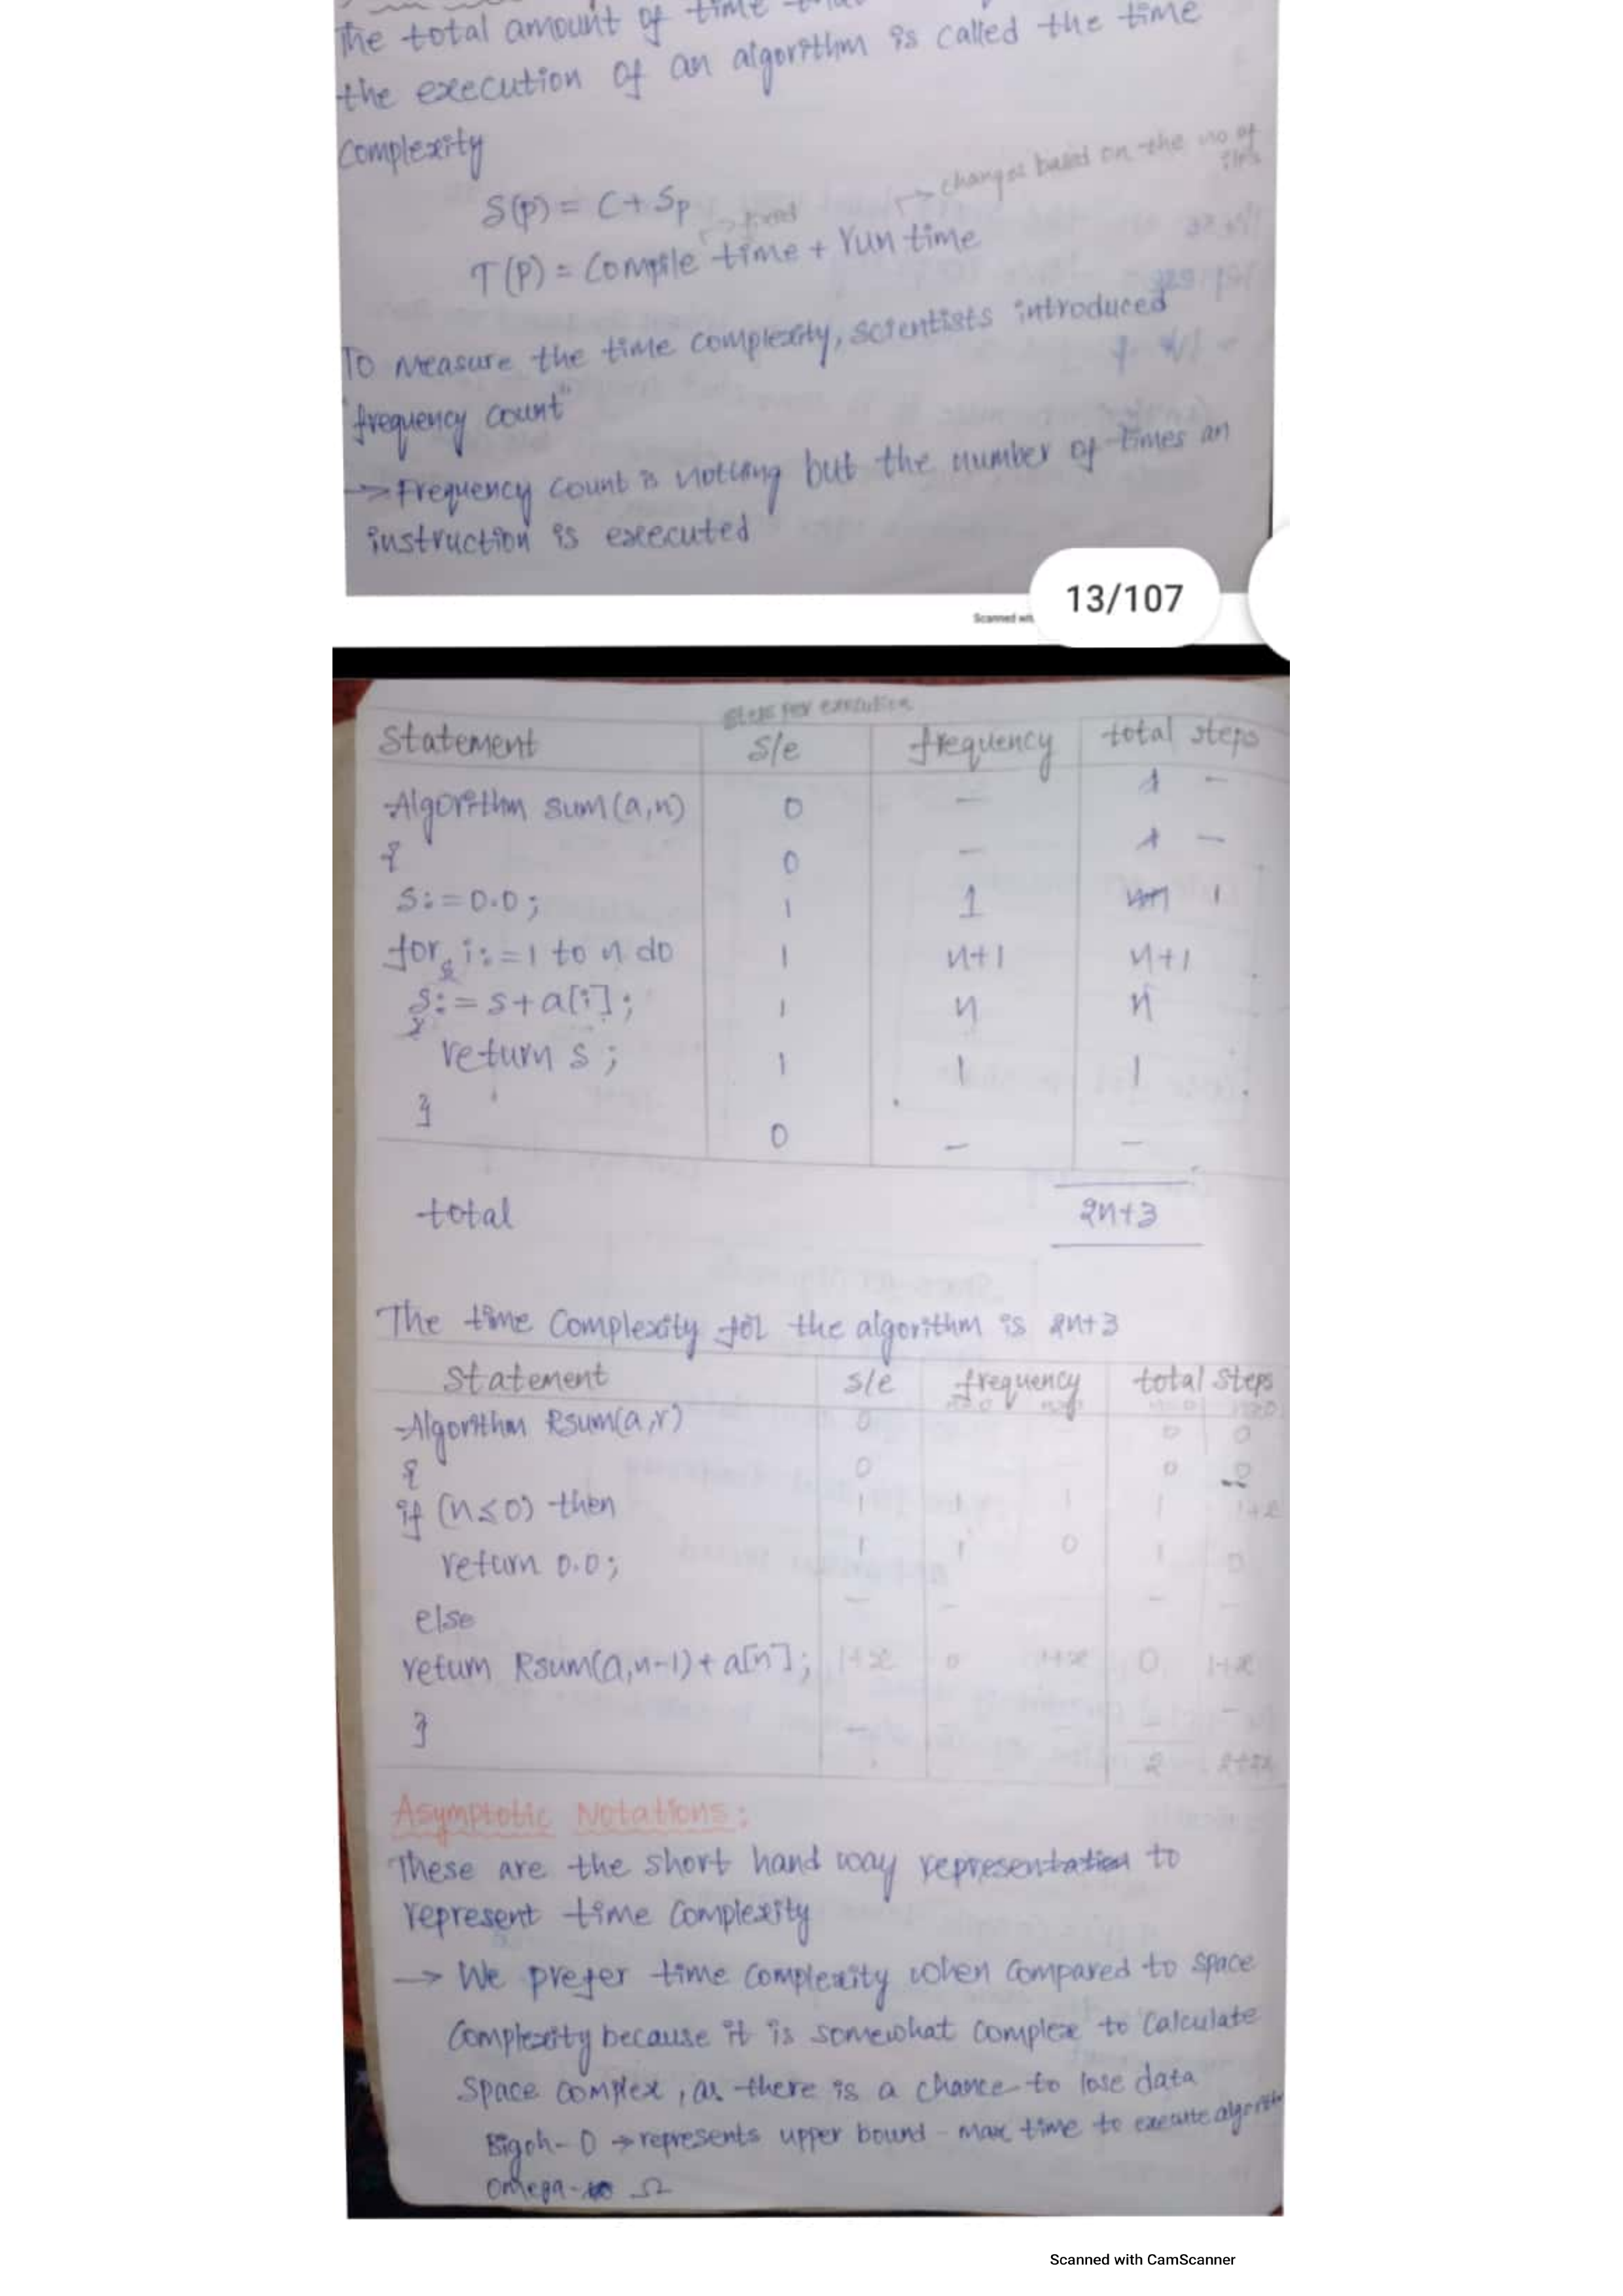 The total amount of time
the execution of an algorithm is called the time
complexity
S(P) = C + Sp
→ fixed
→ changes based on the no of
T(P) = Compile time + run time
To measure the time complexity, scientists introduced
"frequency count"
→ Frequency count is notting but the number of times an
instruction is executed
13/107
Scanned wit
steps per execution
Statement s/e frequency total steps
Algorithm sum(a,n) 0 — 1 —
{ 0 — 1 —
s:=0.0; 1 1 n+1 1
for i:=1 to n do 1 n+1 n+1
{
s:=s+a[i]; 1 n n
}
return s; 1 1 1
} 0 — —
total 2n+3
The time complexity for the algorithm is 2n+3
Statement s/e frequency total steps
n=0 n>0 n=0 n>0
Algorithm Rsum(a,r) 0 0 0
{ 0 0 0
if (n≤0) then 1 1 1 1 1+x
return 0.0; 1 1 0 1 0
else — — — —
return Rsum(a,n-1)+a[n]; 1+x 0 1+x 0 1+x
} — — — —
2 2+2x
Asymptotic Notations:
These are the short hand way representation to
represent time complexity
→ We prefer time complexity when compared to space
complexity because it is somewhat complex to calculate
space complex, as there is a chance to lose data
Bigoh - O → represents upper bound - max time to execute algorith
Omega - Ω
Scanned with CamScanner